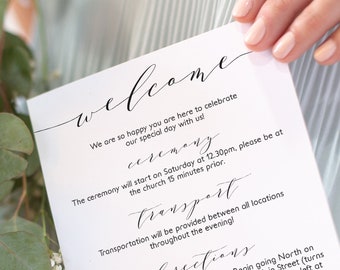 welcome
We are so happy you are here to celebrate
our special day with us!
ceremony
The ceremony will start on Saturday at 12.30pm, please be at
the church 15 minutes prior.
transport
Transportation will be provided between all locations
throughout the evening!
directions
Begin going North on
in Street (turns
left at